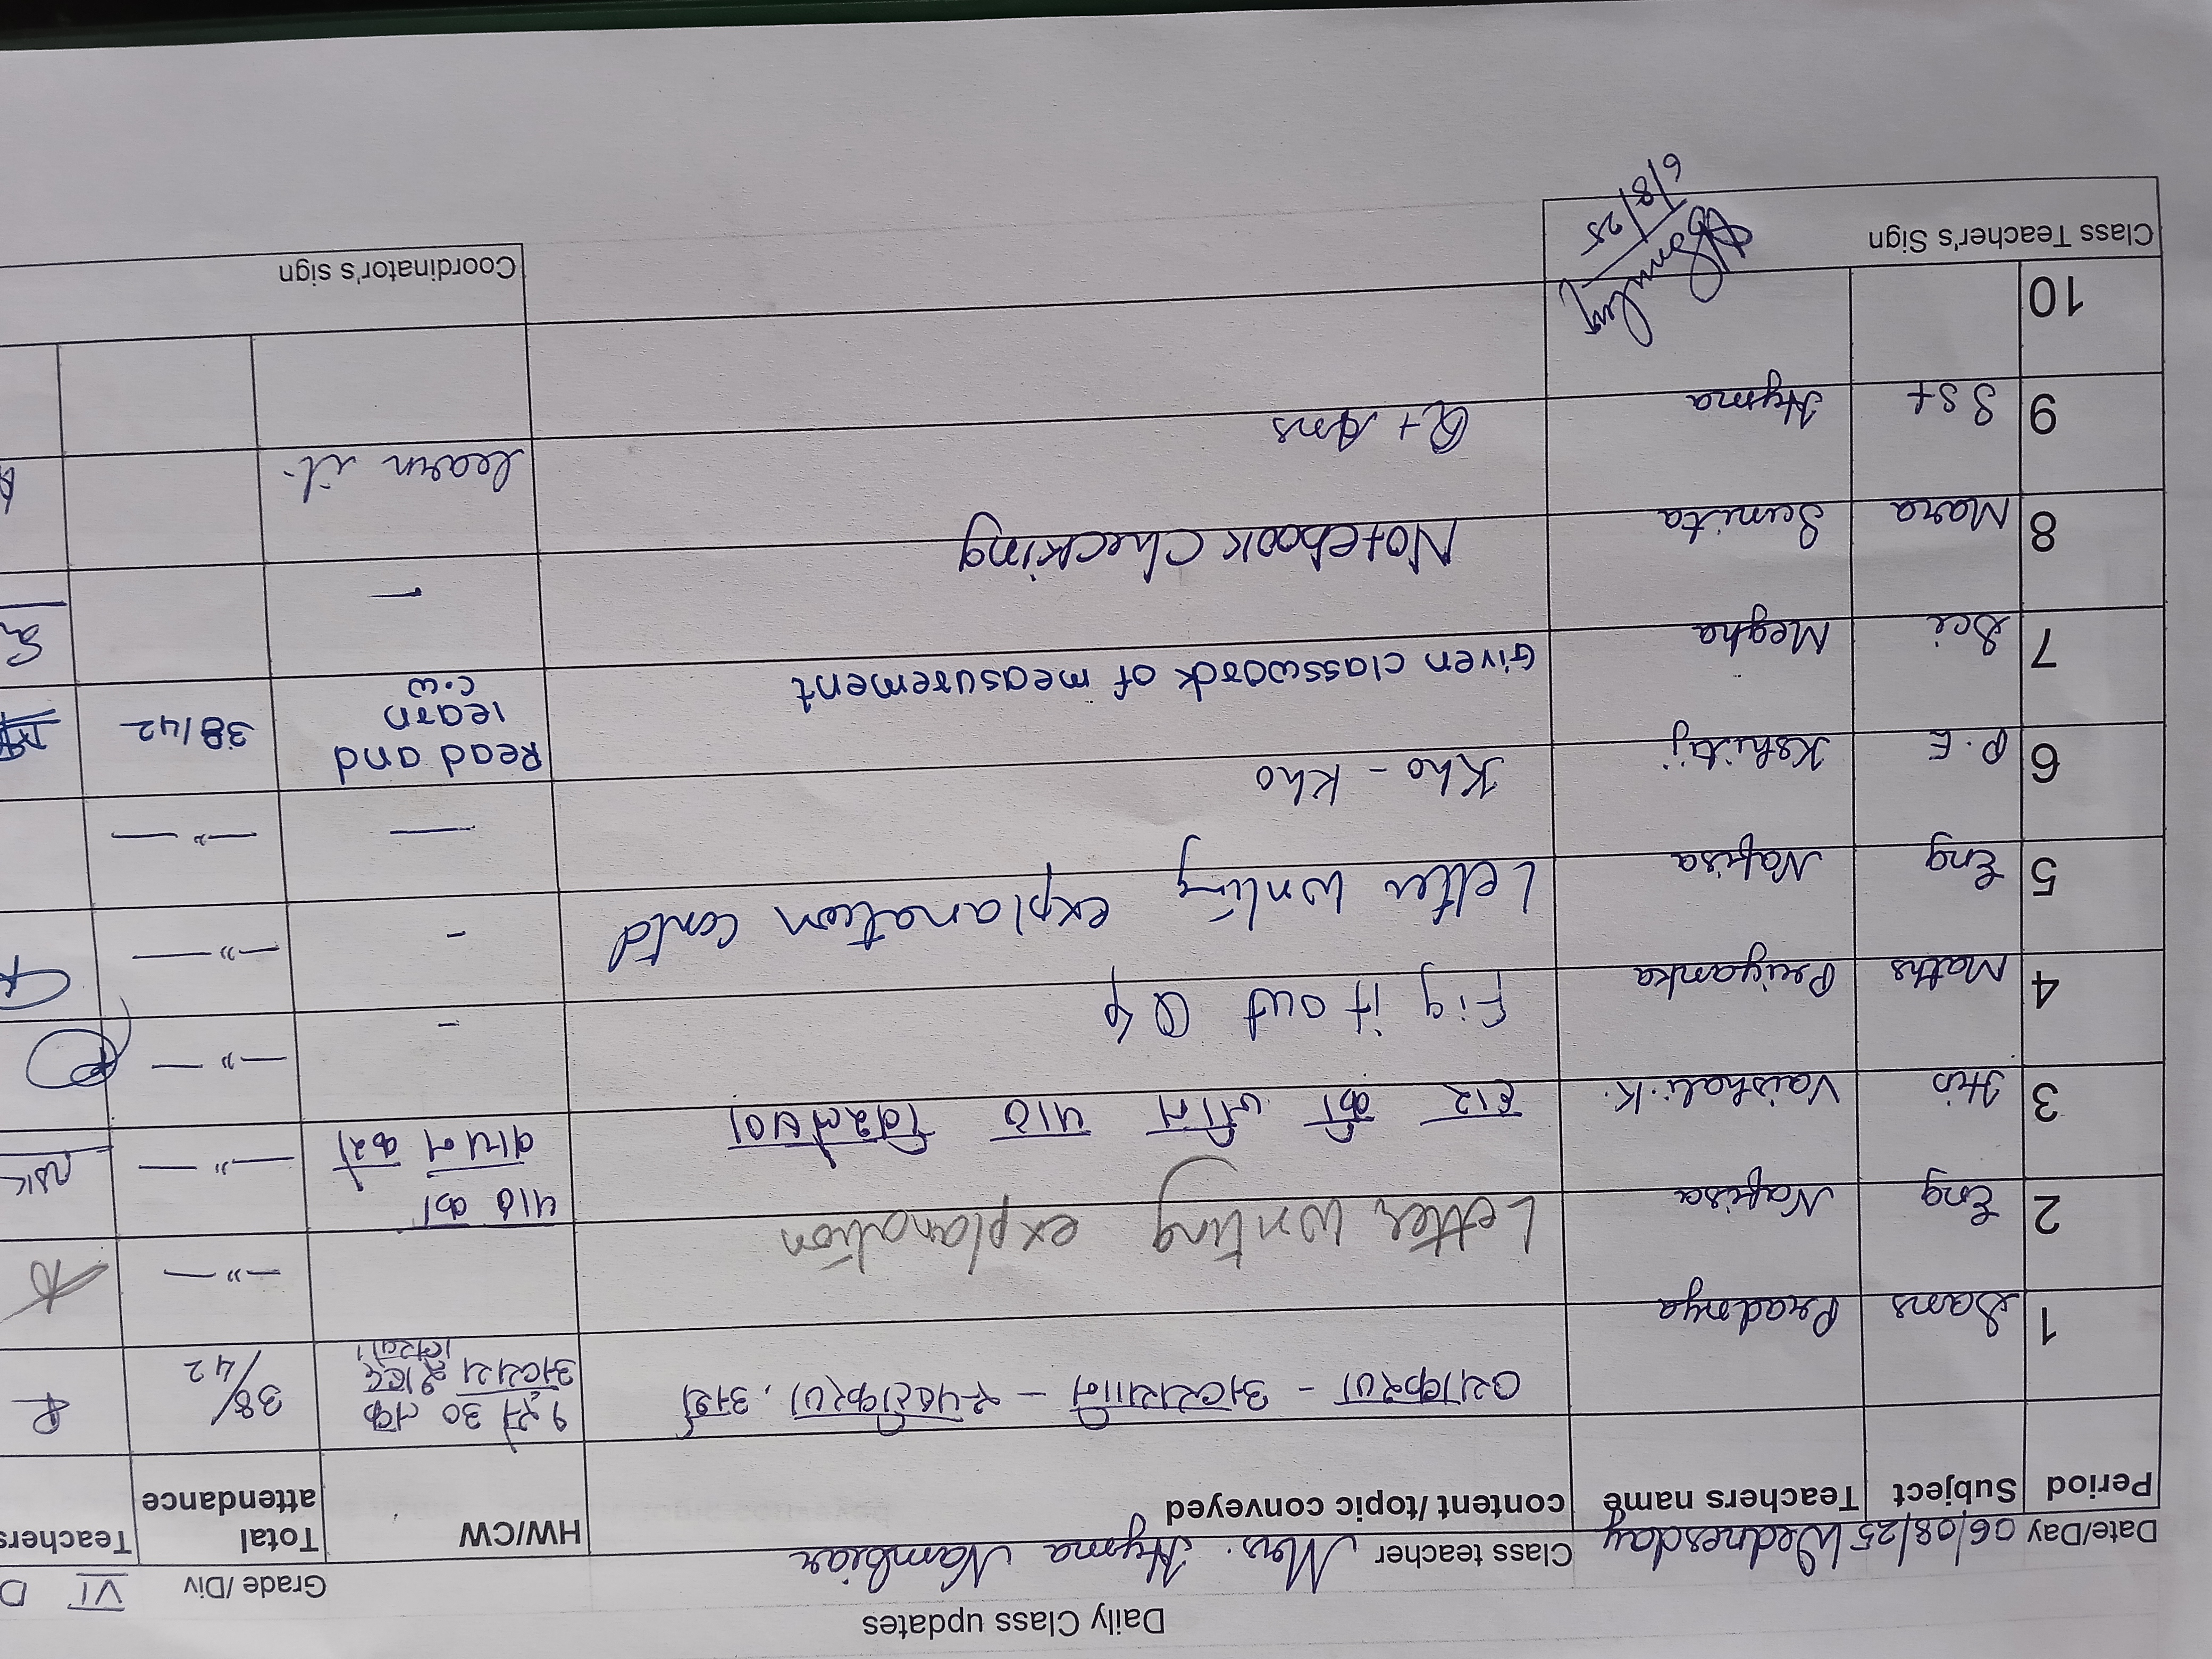 Daily Class updates
Date/Day 06/08/25 Wednesday Class teacher Mrs. Hyma Nambiar Grade /Div VI D
Period Subject Teachers name content/topic conveyed HW/CW Total attendance Teachers
1 Sans Pradnya व्याकरण - अव्ययानि - स्पष्टीकरण, अर्थ 38/42
१ ते 30 तक
अव्यय शब्द
2 Eng Nafisa Letter writing explanation —"—
3 Hin Vaishali.K. हार की जीत पाठ —"—
पाठ का
वाचन करो
4 Maths Priyanka Fig it out Q 4 - —"—
5 Eng Nafisa Letter writing explanation contd - —"—
6 P.E Kshitij Kho - Kho — —"—
7 Sci Megha Given classwork of measurement Read and 38/42
learn
c.w
8 Mara Sunita Notebook Checking -
9 SSt Hyma Q + Ans learn it.
10
Class Teacher's Sign 6/8/25 Coordinator's sign